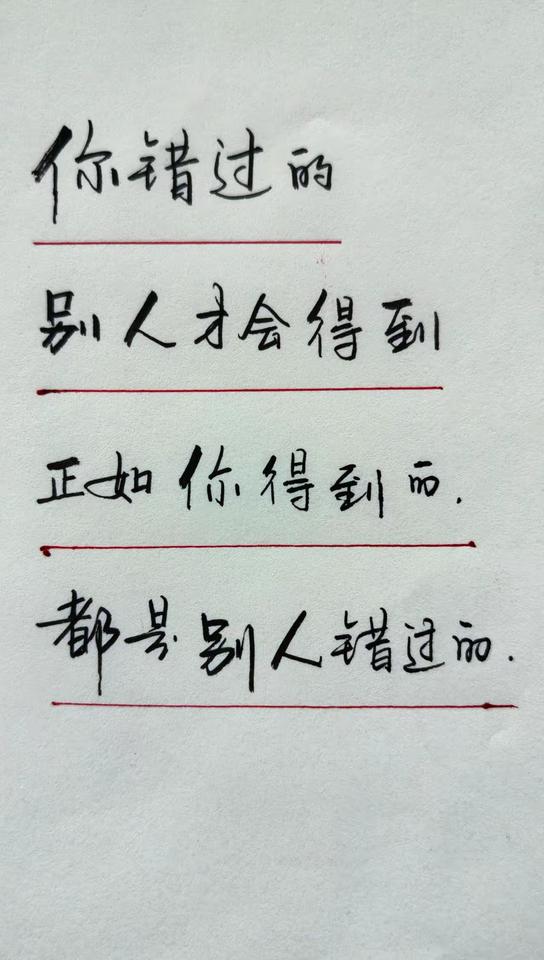 你错过的
别人才会得到
正如你得到的.
都是别人错过的.